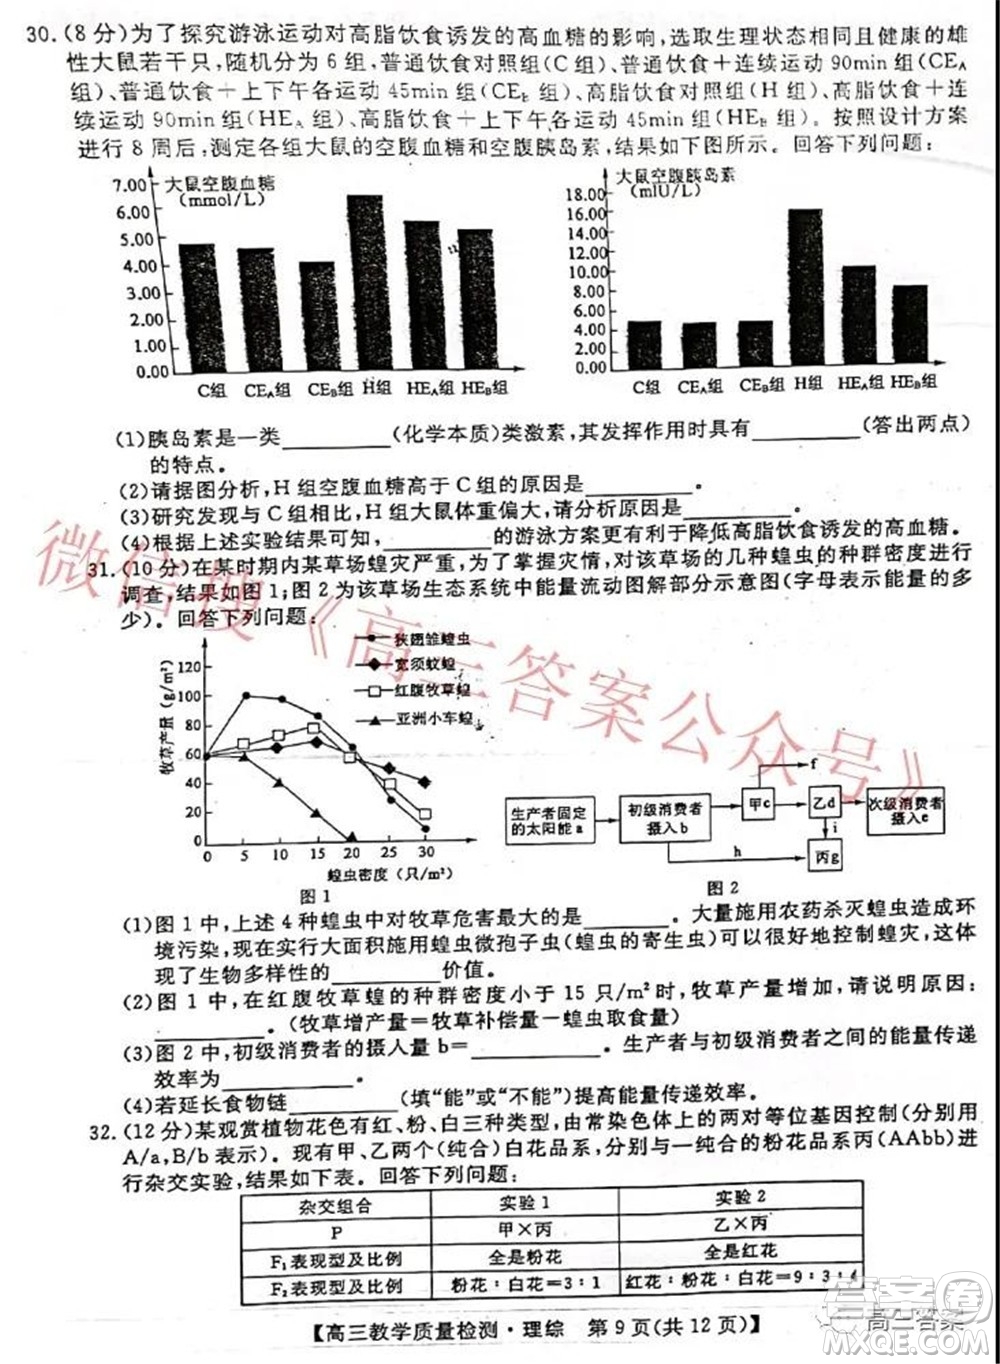 30.(8 分)为了探究游泳运动对高脂饮食诱发的高血糖的影响,选取生理状态相同且健康的雄
性大鼠若干只,随机分为 6 组,普通饮食对照组(C 组)、普通饮食＋连续运动 90min 组(CEA
组)、普通饮食＋上下午各运动 45min 组(CEB 组)、高脂饮食对照组(H 组)、高脂饮食＋连
续运动 90min 组(HEA 组)、高脂饮食＋上下午各运动 45min 组(HEB 组)。按照设计方案
进行 8 周后,测定各组大鼠的空腹血糖和空腹胰岛素,结果如下图所示。回答下列问题:
大鼠空腹血糖
(mmol/L)
7.00
6.00
5.00
4.00
3.00
2.00
1.00
0.00
C组 CEA组 CEB组 H组 HEA组 HEB组
大鼠空腹胰岛素
(mIU/L)
18.00
16.00
14.00
12.00
10.00
8.00
6.00
4.00
2.00
0.00
C组 CEA组 CEB组 H组 HEA组 HEB组
(1)胰岛素是一类________(化学本质)类激素,其发挥作用时具有________(答出两点)
的特点。
(2)请据图分析,H 组空腹血糖高于 C 组的原因是________。
(3)研究发现与 C 组相比,H 组大鼠体重偏大,请分析原因:________。
(4)根据上述实验结果可知,________的游泳方案更有利于降低高脂饮食诱发的高血糖。
31.(10 分)在某时期内某草场蝗灾严重,为了掌握灾情,对该草场的几种蝗虫的种群密度进行
调查,结果如图 1;图 2 为该草场生态系统中能量流动图解部分示意图(字母表示能量的多
少)。回答下列问题:
牧草产量(g/m²)
120
100
80
60
40
20
0
0 5 10 15 20 25 30
蝗虫密度(只/m²)
狭翅雏蝗虫
宽须蚁蝗
红腹牧草蝗
亚洲小车蝗
图 1
生产者固定
的太阳能 a
初级消费者
摄入 b
甲c
f
乙d
次级消费者
摄入 e
i
h
丙g
图 2
(1)图 1 中,上述 4 种蝗虫中对牧草危害最大的是________。大量施用农药杀灭蝗虫造成环
境污染,现在实行大面积施用蝗虫微孢子虫(蝗虫的寄生虫)可以很好地控制蝗灾,体现
了生物多样性的________价值。
(2)图 1 中,在红腹牧草蝗的种群密度小于 15 只/m²时,牧草产量增加,请说明原因:
________。(牧草增产量＝牧草补偿量－蝗虫取食量)
(3)图 2 中,初级消费者的摄人量 b＝________。生产者与初级消费者之间的能量传递
效率为________。
(4)若延长食物链________(填“能”或“不能”)提高能量传递效率。
32.(12 分)某观赏植物花色有红、粉、白三种类型,由常染色体上的两对等位基因控制(分别用
A/a,B/b 表示)。现有甲、乙两个(纯合)白花品系,分别与一纯合的粉花品系丙(AAbb)进
行杂交实验,结果如下表。回答下列问题:
杂交组合 实验 1 实验 2
P 甲×丙 乙×丙
F₁表现型及比例 全是粉花 全是红花
F₂表现型及比例 粉花∶白花＝3∶1 红花∶粉花∶白花＝9∶3∶4
【高三教学质量检测·理综 第 9 页(共 12 页)】
微信搜《高三答案公众号》
答案圈
高三答案